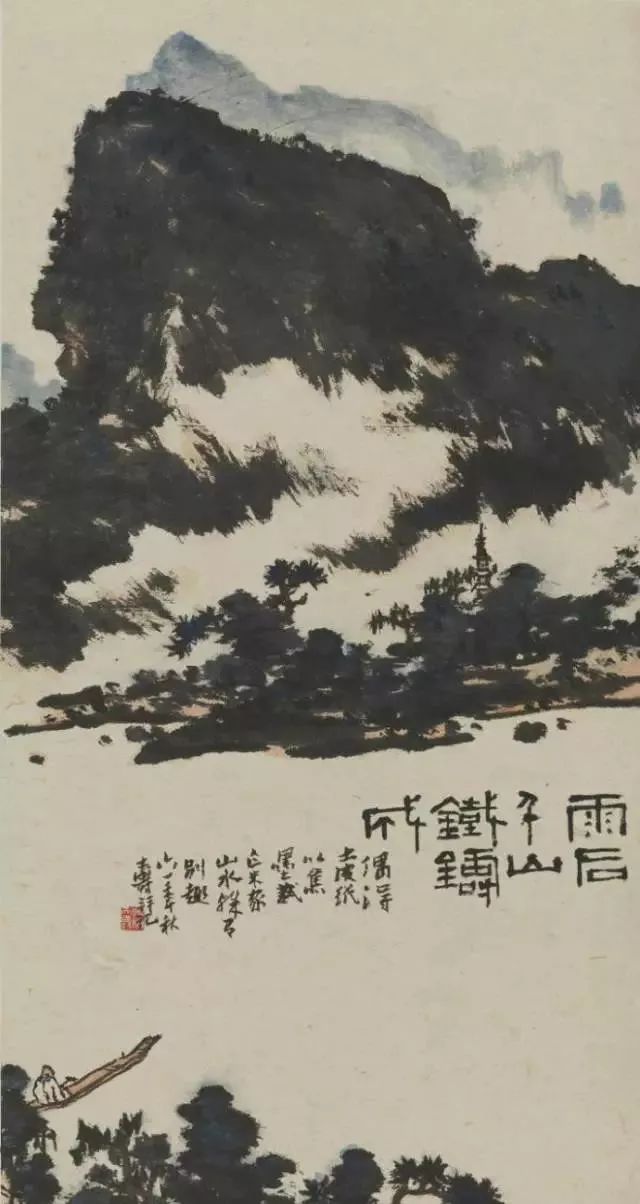 雨后
千山
鐵鑄
成
偶得
土皮紙
以焦
墨
米家
山水殊有
別趣
六一年秋
壽並記